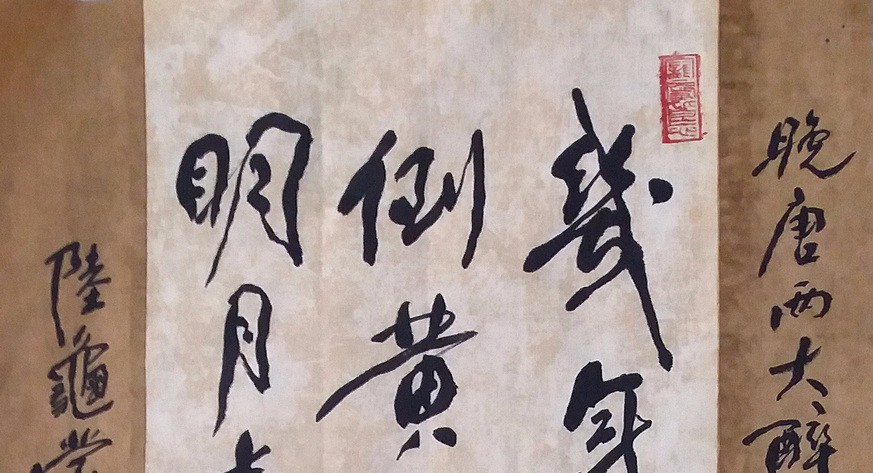 晚唐两大醉
幾年
倒黄
明月
陸龜蒙